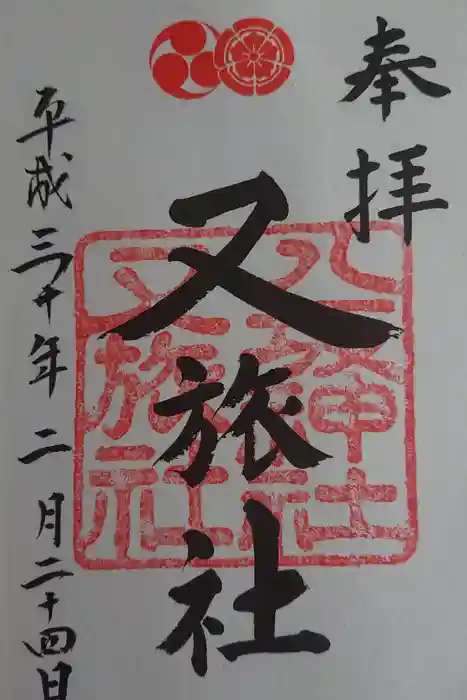 奉拝
又旅社
平成三十年二月二十四日